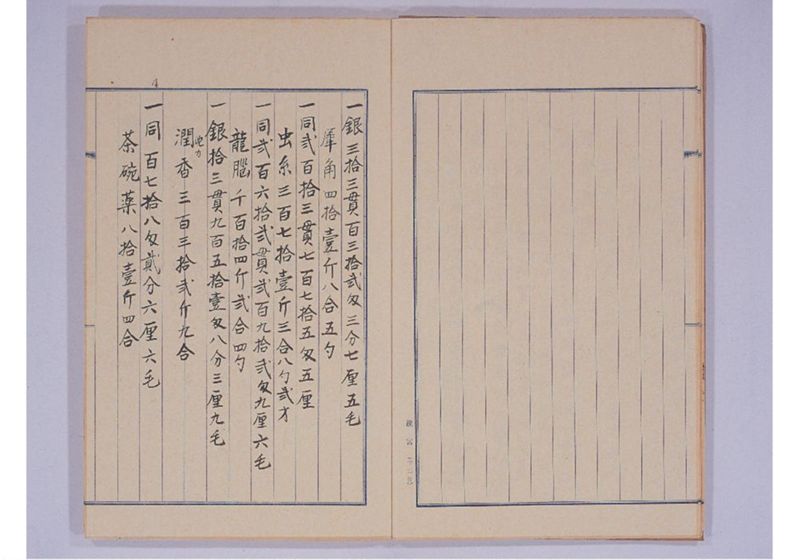 一銀三拾三貫百三拾弐匁三分七厘五毛
犀角四拾壹斤八合五勺
一同弐百拾三貫七百七拾五匁五厘
虫糸三百七拾壹斤三合八勺弐才
一同弐百六拾弐貫弐百九拾弐匁九厘六毛
龍腦千百拾四斤弐合四勺
一銀拾三貫九百五拾壹匁八分三厘九毛
潤香三百三拾弐斤九合
一同百七拾八匁貳分六厘六毛
茶碗薬八拾壹斤四合